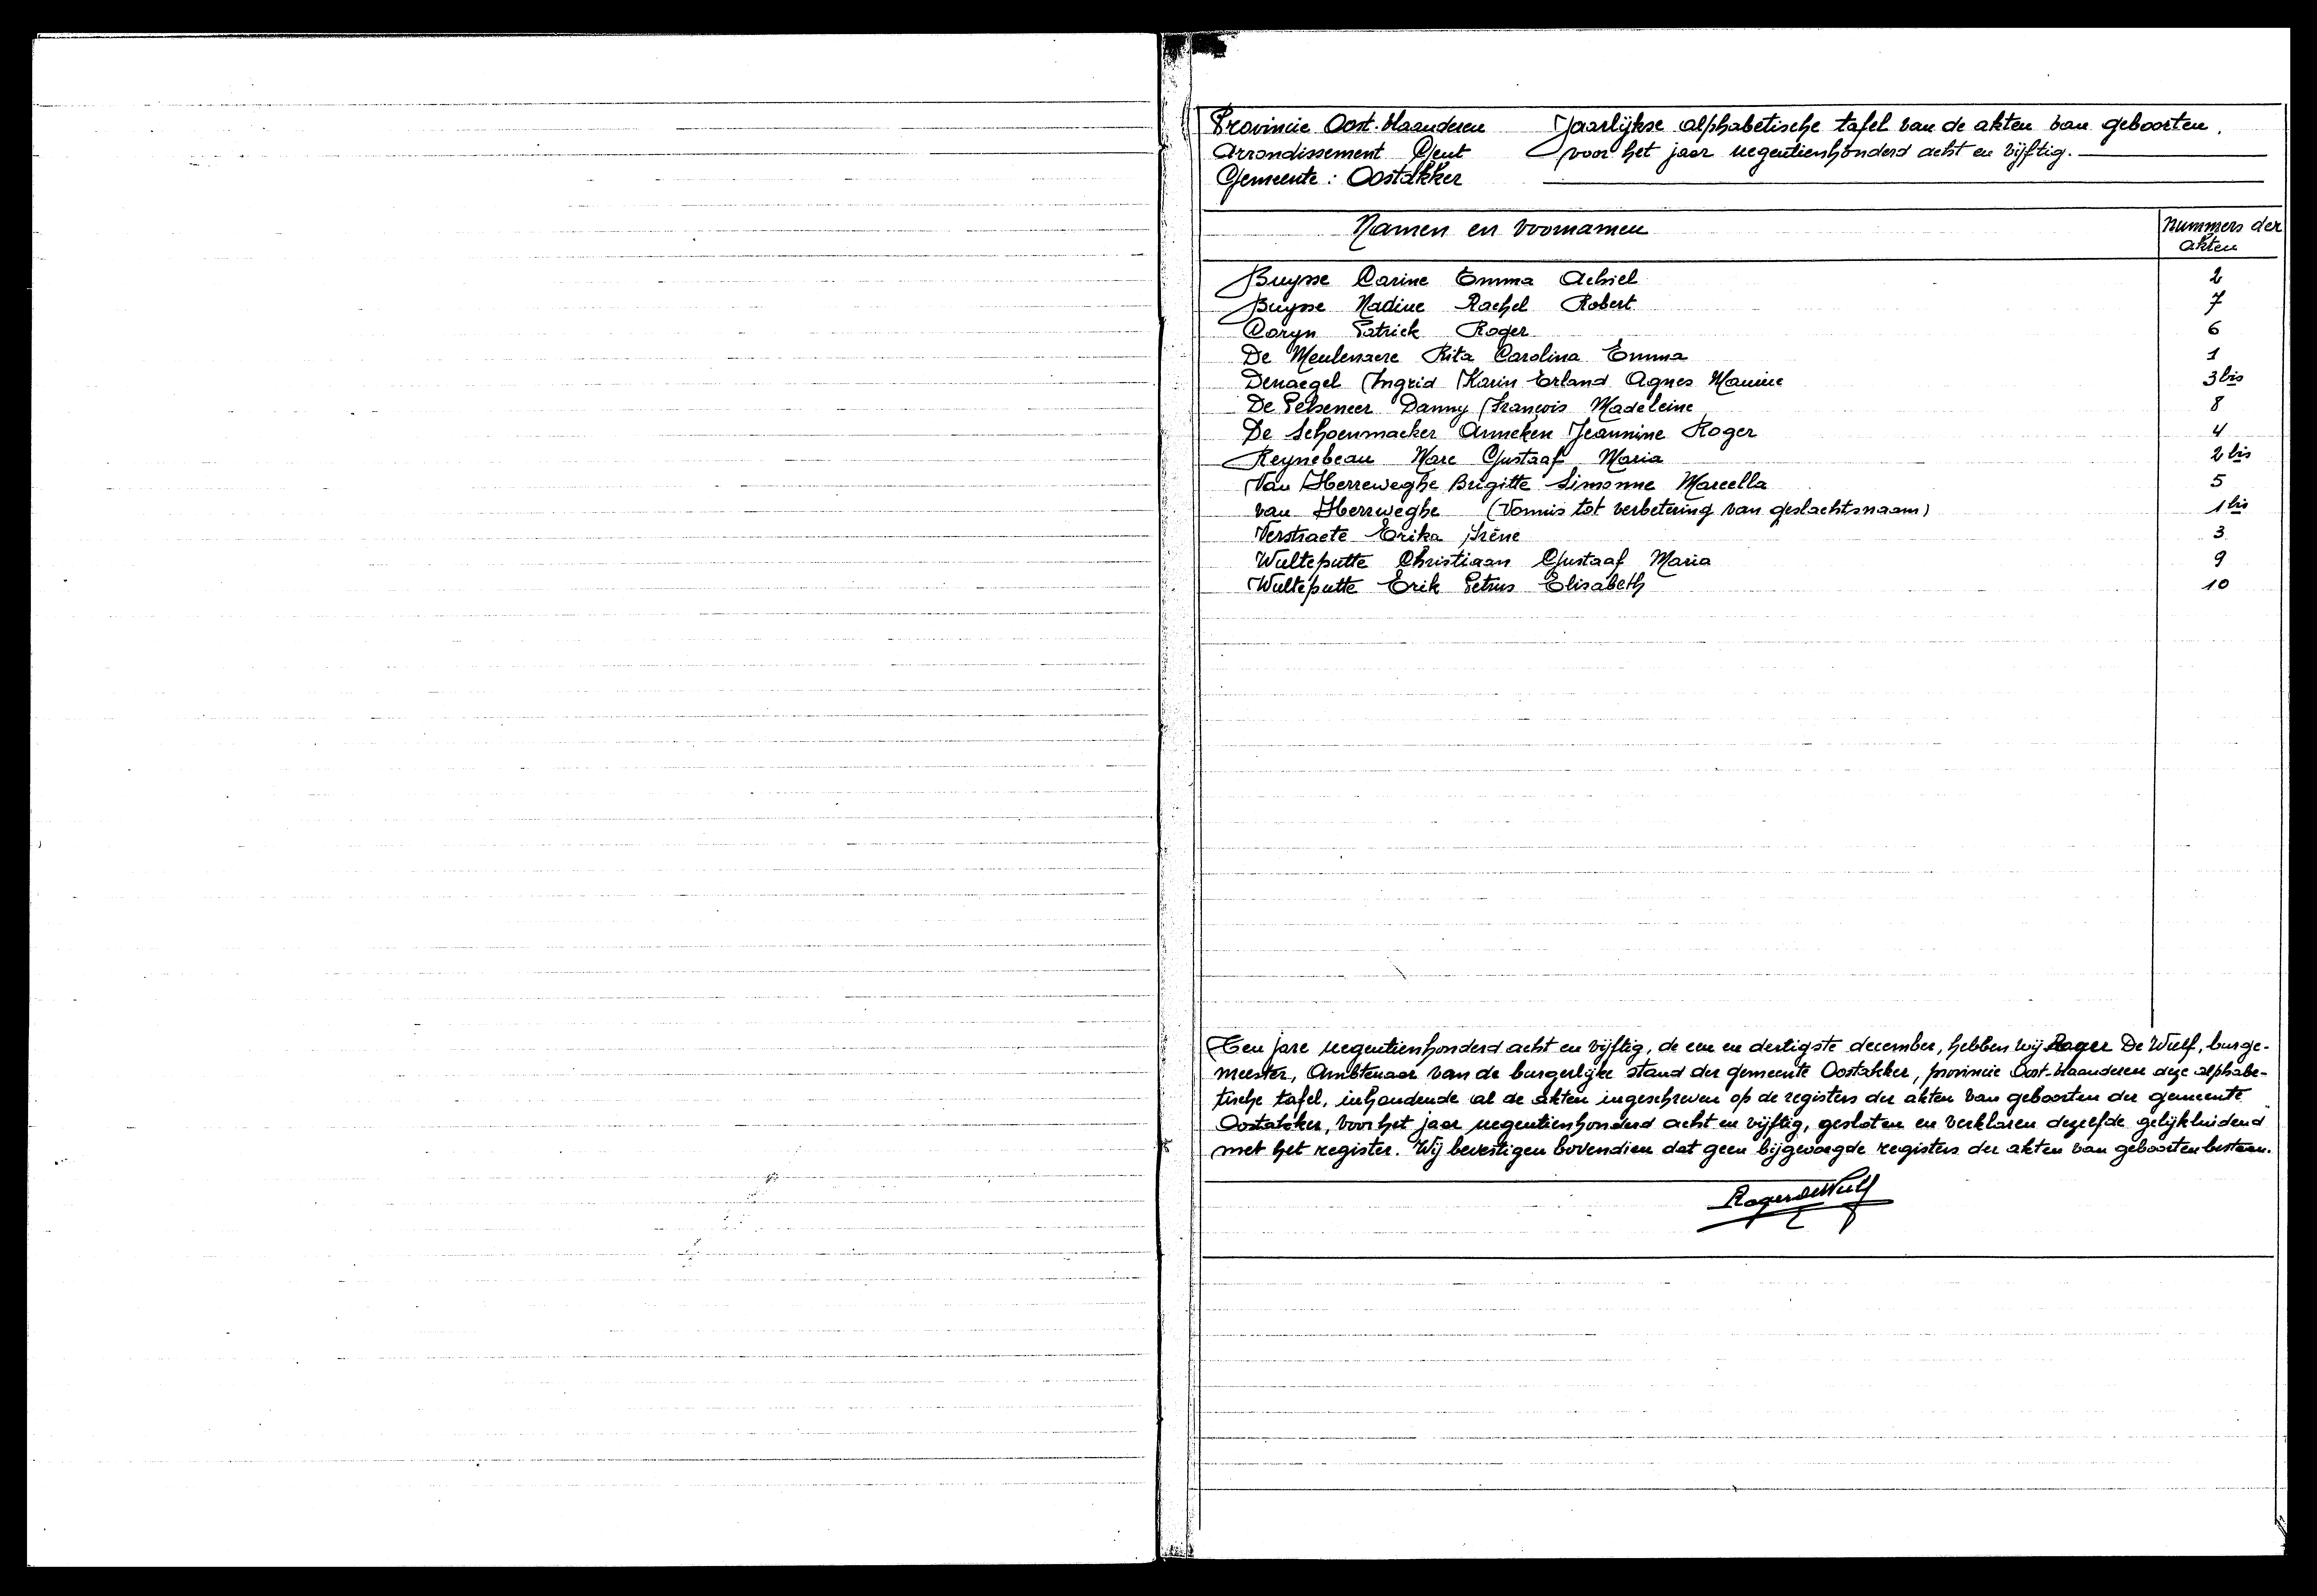 Provincie Oost-Vlaanderen Jaarlijkse alphabetische tafel van de akten van geboorten.
Arrondissement Gent voor het jaar negentienhonderd acht en vijftig.
Gemeente: Oostakker
Namen en voornamen Nummers der akten
Buysse Carine Emma Achiel 2
Buysse Nadine Rachel Robert 7
Coryn Patrick Roger 6
De Meulenaere Rita Carolina Emma 1
Denaegel Ingrid Karin Erland Agnes 3 bis
De Pelseneer Danny François Madeleine 8
De Schoenmaeker Anneken Jeannine Roger 4
Reynebeau Marc Gustaaf Maria 2 bis
Van Herreweghe Brigitte Simonne Marcella 5
van Herrweghe (Vonnis tot verbetering van geslachtsnaam) 1 bis
Verstraete Erika Irène 3
Wulteputte Christiaan Gustaaf Maria 9
Wulteputte Erik Petrus Elisabeth 10
Ten jare negentienhonderd acht en vijftig, de een en dertigste december, hebben wij Roger De Wulf, burge-
meester, Ambtenaar van de burgerlijke stand der gemeente Oostakker, provincie Oost-Vlaanderen deze alphabe-
tische tafel, inhoudende al de akten ingeschreven op de registers der akten van geboorten der gemeente
Oostakker, voor het jaar negentienhonderd acht en vijftig, gesloten en verklaren dezelfde gelijkluidend
met het register. Wij bevestigen bovendien dat geen bijgevoegde registers der akten van geboorten bestaan.
Roger De Wulf